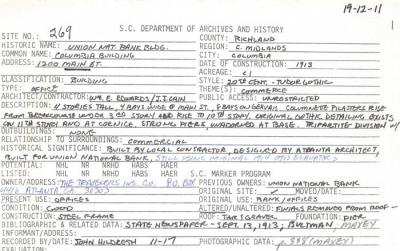 19-12-11
1
SITE NO.: 269 S.C. DEPARTMENT OF ARCHIVES AND HISTORY
COUNTY: RICHLAND
HISTORIC NAME: UNION NAT. BANK BLDG. REGION: C. MIDLANDS
COMMON NAME: COLUMBIA BUILDING CITY: COLUMBIA
ADDRESS: 1200 MAIN ST. DATE OF CONSTRUCTION: 1913
ACREAGE: <1
CLASSIFICATION: BUILDING STYLE: 20TH CENT. - TUDOR GOTHIC
TYPE: OFFICE THEME(S): COMMERCE
ARCHITECT/CONTRACTOR: WM. E. EDWARDS / J.J. CAIN PUBLIC ACCESS: UNRESTRICTED
DESCRIPTION: 11 STORIES TALL, 4 BAYS WIDE ON MAIN ST., 8 BAYS ON GERVAIS. COLONETTE PILASTERS RISE
FROM BROKEN CORNICE ABOVE 3RD STORY AND RISE TO 10TH STORY. ORIGINAL GOTHIC DETAILING EXISTS
ON 11TH STORY AND AT CORNICE. STRONG PIERS, UNADORNED AT BASE. TRIPARTITE DIVISION
OUTBUILDINGS: NONE
RELATIONSHIP TO SURROUNDINGS: COMMERCIAL
HISTORICAL SIGNIFICANCE: BUILT BY LOCAL CONTRACTOR, DESIGNED BY ATLANTA ARCHITECT,
BUILT FOR UNION NATIONAL BANK, STILL USING ORIGINAL 1914 OTIS ELEVATORS
POTENTIAL: NHL NR NRHD HABS HAER
LISTED: NHL NR NRHD HABS HAER S.C. MARKER PROGRAM
OWNER/ADDRESS: THE TRAVELERS INS. CO. P.O. BOX PREVIOUS OWNERS: UNION NATIONAL BANK
ATLANTA GA 30303 ORIGINAL SITE: MOVED:
PRESENT USE: OFFICES ORIGINAL USE: BANK/OFFICES
CONDITION: GOOD ALTERED/UNALTERED: FINIALS REMOVED FROM ROOF
CONSTRUCTION: STEEL FRAME ROOF: TAR & GRAVEL FOUNDATION: PIER
BIBLIOGRAPHIC & RELATED DATA: STATE NEWSPAPER - SEPT. 13, 1913; BULTMAN (MAXEY)
INFORMANTS:
RECORDED BY/DATE: JOHN HILDRETH 11-17 PHOTOGRAPHIC DATA: (MAXEY)